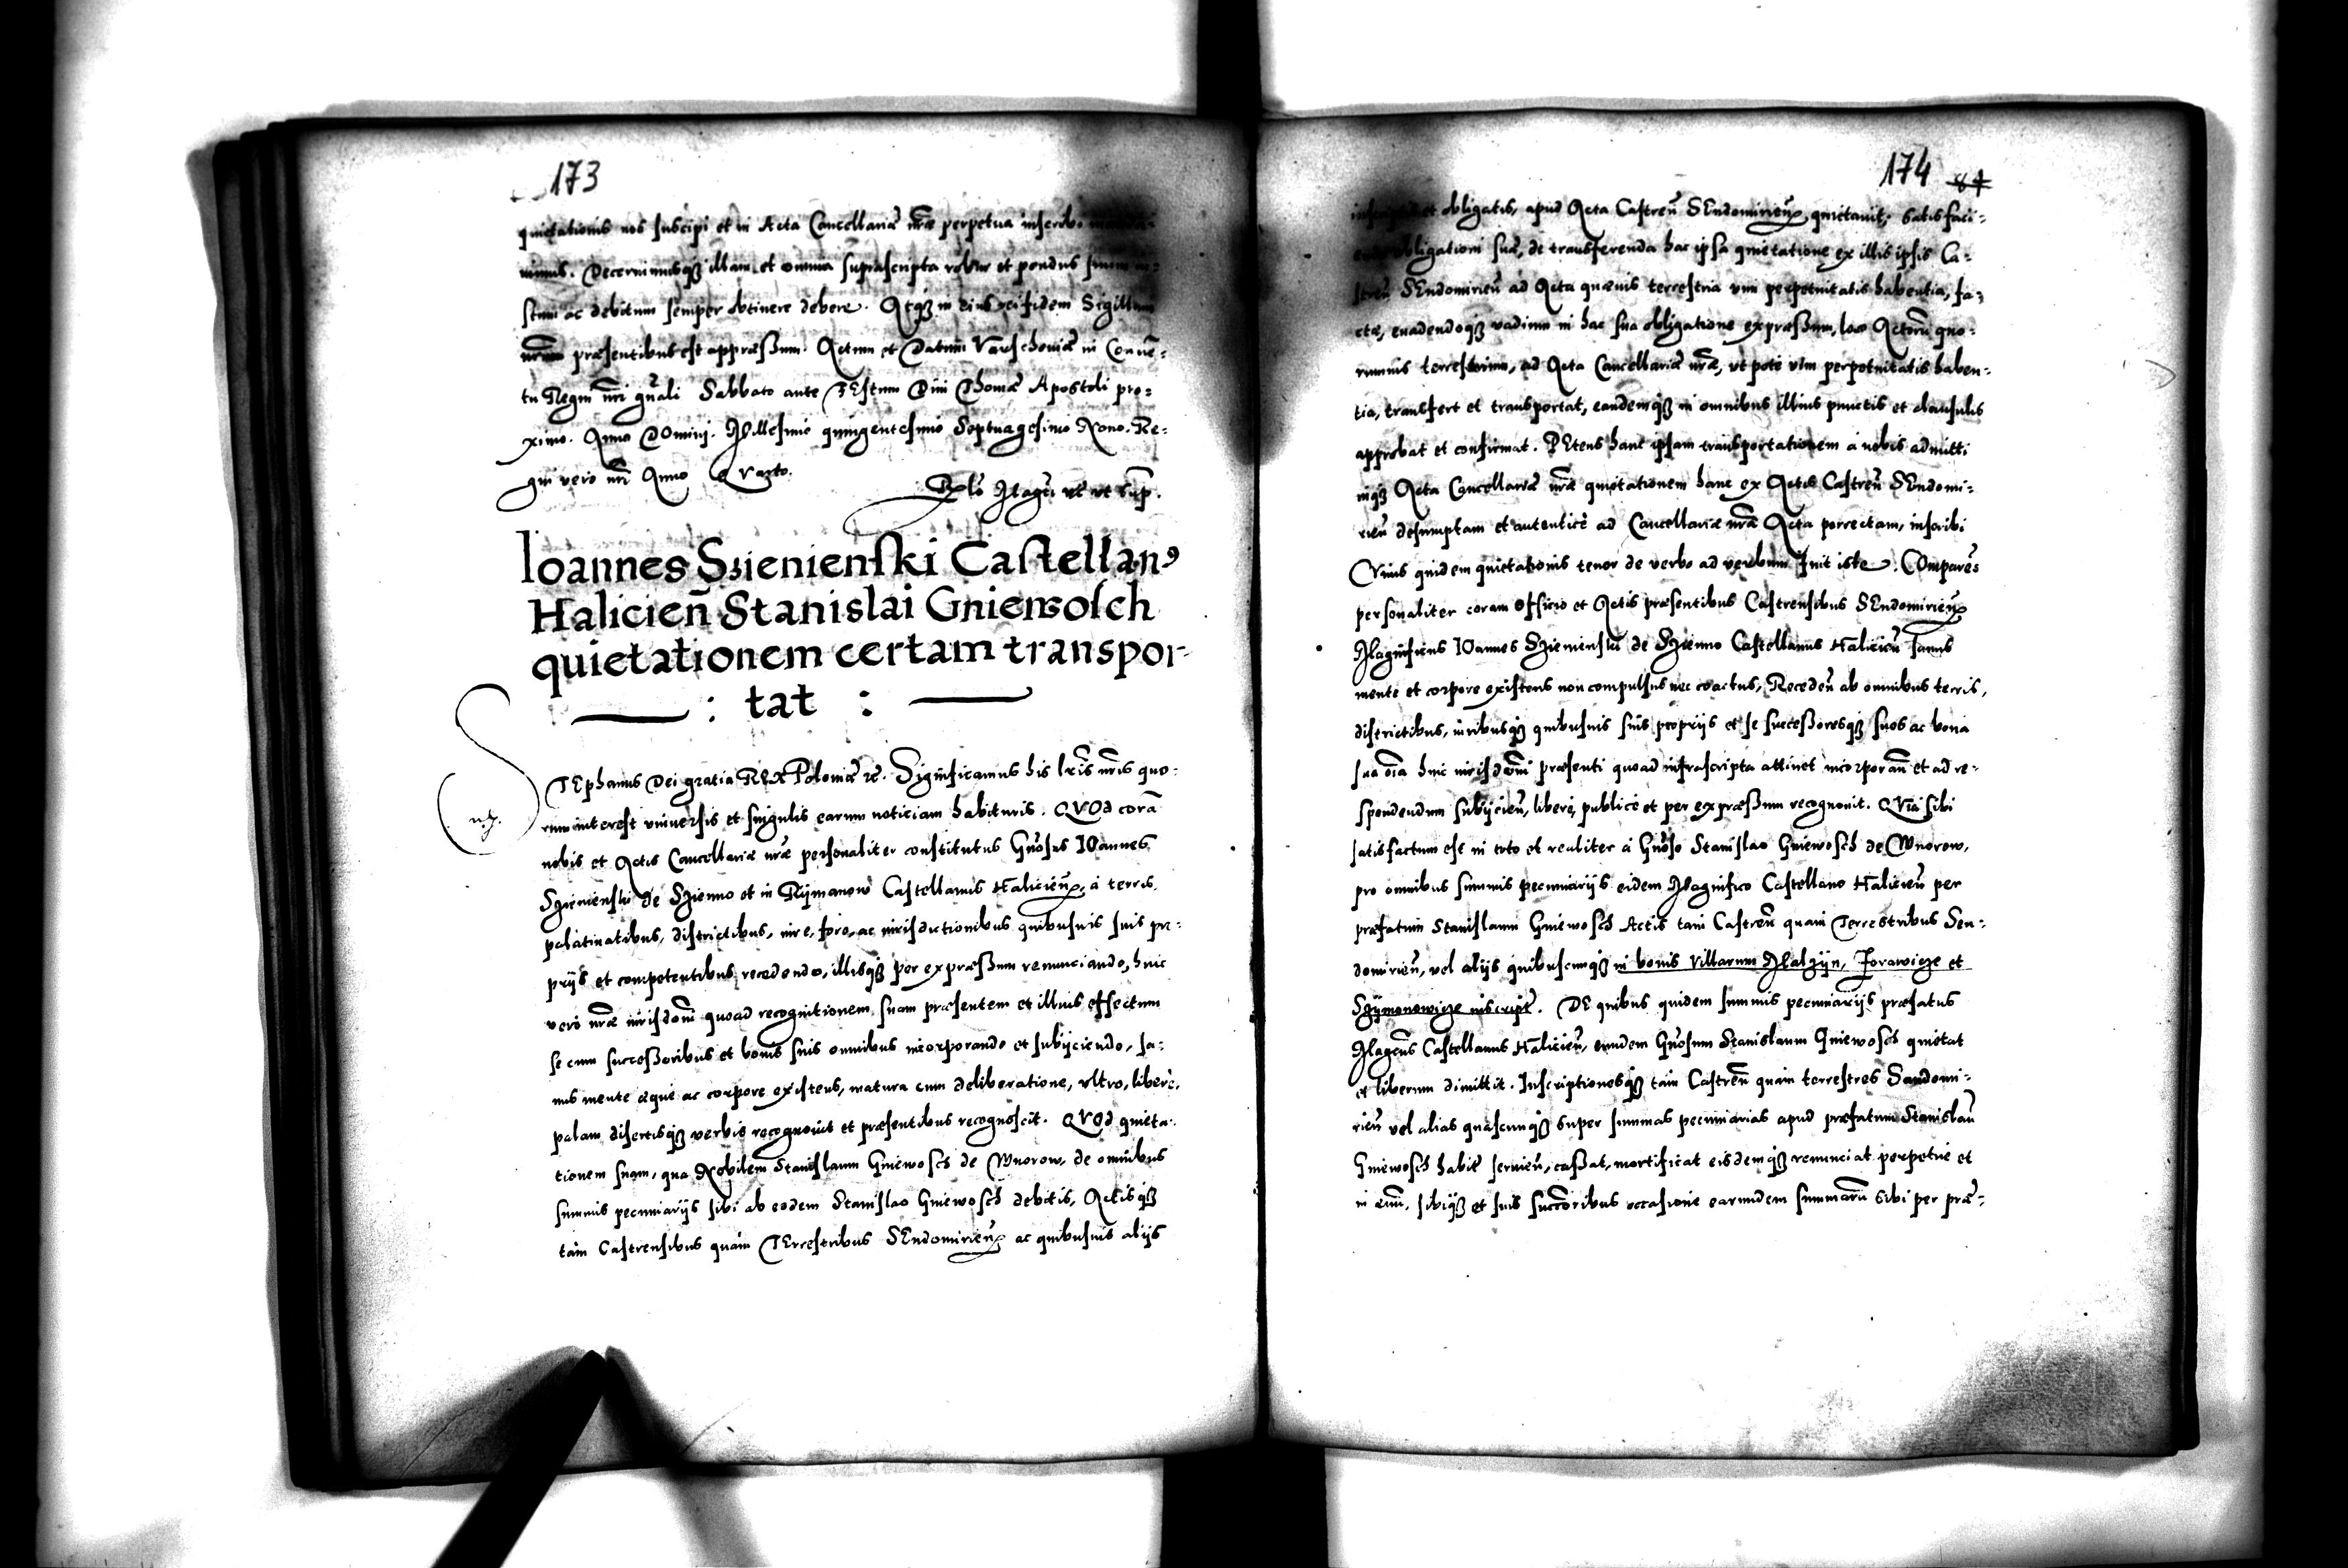 173
quietationis nos suscipi et in Acta Cancellariæ nr̃æ perpetua inscribi
Decernimusqʒ illam et omnia suprascripta robur et pondus suum
stum ac debitum semper obtinere debere. Atqʒ in eius rei fidem Sigillum
præsentibus est appræssum. Actum et Datum Varschouiæ in Conue-
tu Regni nr̃i gñali Sabbato ante FEstum Diui Thomæ Apostoli pro-
ximo. Anno DOmini. Millesimo quingentesimo Septuagesimo Nono. Re-
gni vero nr̃i Anno Quarto.
ut sup.
Ioannes Szienienski Castellanꝰ
Halicien̄ Stanislai Gniewosch
quietationem certam transpor-
: tat :
STEphanus Dei gratia REX Poloniæ ꝛc. Significamus his lr̃is nr̃is quo-
rum interest vniuersis et singulis earum noticiam habituris. QVOd corā
nobis et Actis Cancellariæ nr̃æ personaliter constitutus Gñosus IOannes
Szienienski de Szienno et in Rymanow Castellanus Halicien̄, à terris,
palatinatibus, districtibus, iure, foro, ac iurisdictionibus quibusuis suis pro-
prijs et competentibus recedendo, illisqʒ per expræssum renunciando, huic
vero nr̃æ iurisdom̄ quoad recognitionem suam præsentem et illius effectum
se cum successoribus et bonis suis omnibus incorporando et subijciendo, sa-
nus mente æque ac corpore existens, matura cum deliberatione, vltro, liberè,
palam, disertisqʒ verbis recognouit et præsentibus recognoscit. QVOd quieta-
tionem suam, qua Nobilem Stanislaum Gniewosch de Wnorow, de omnibus
summis pecuniarijs sibi ab eodem Stanislao Gniewosch debitis, Actisqʒ
tàm Castrensibus quàm TErrestribus SEndomirien̄ ac quibusuis alijs
174 87
et obligatis, apud Acta Castren̄ SEndomirien̄, quietauit, Satisfaci-
obligationi suæ, de transferenda hac ipsa quietatione ex illis ipsis Ca-
stren̄ SEndomirien̄ ad Acta quæuis terrestria vim perpetuitatis habentia, fa-
ctæ, euadendoqʒ vadium in hac sua obligatione expræssum, loco Actorū quo-
rumuis terrestrium, ad Acta Cancellariæ nr̃æ, vt pote vim perpetuitatis haben-
tia, transfert et transportat, eandemqʒ in omnibus illius punctis et clausulis
approbat et confirmat. PEtens hanc ipsam transportationem à nobis admitti
inqʒ Acta Cancellariæ nr̃æ quietationem hanc ex Actis Castren̄ SEndomi-
rien̄ desumptam et autenticè ad Cancellariæ nr̃æ Acta porrectam, inscribi
Cuius quidem quietationis tenor de verbo ad verbum fuit iste. COmparēs
personaliter coram Officio et Actis præsentibus Castrensibus SEndomirien̄
Magnificus IOannes Szienienski de Szienno Castellanus Halicien̄ sanus
mente et corpore existens non compulsus nec coactus, Receden̄ ab omnibus terris,
districtibus, iuribusqʒ quibusuis suis proprijs et se successoresqʒ suos ac bona
sua om̄ia huic iurisdom̄i præsenti quoad infrascripta attinet incorporan̄ et ad re-
spondendum subijcien̄, liberè, publicè et per expræssum recognouit. QVia sibi
satisfactum est in toto et realiter à Gñoso Stanislao Gniewosch de Wnorow,
pro omnibus summis pecuniarijs eidem Magnifico Castellano Halicien̄ per
præfatum Stanislaum Gniewosch Actis tàm Castren̄ quàm Terrestribus Sen-
domirien̄, vel alijs quibuscunqʒ in bonis Villarum Malzyn, Zorawicze et
Szymonowicze inscript̄. DE quibus quidem summis pecuniarijs præfatus
Magcūs Castellanus Halicien̄, eundem Gñosum Stanislaum Gniewosch quietat
et liberum dimittit. Inscriptionesqʒ tàm Castren̄ quàm terrestres Sandomi-
rien̄ vel alias quascunqʒ super summas pecuniarias apud præfatum Stanislaū
Gniewosch habit̄ seruien̄, cassat, mortificat eisdemqʒ renunciat perpetuè et
in æuū, sibiqʒ et suis succōribus occasione earundem summarū sibi per præ-